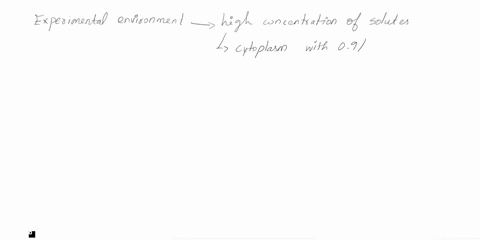 Experimental environment → high concentration of solutes
↳ cytoplasm with 0.9/